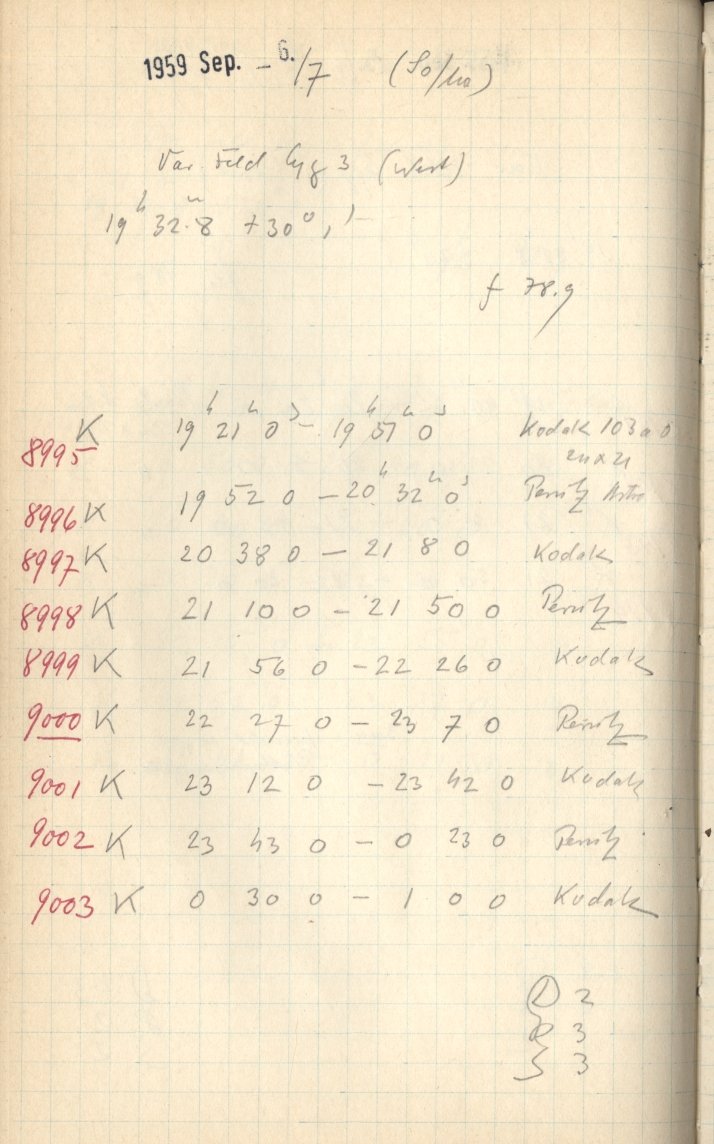 1959 Sep. - 6./7 (So/Mo)
Var. Feld Cyg 3 (West)
19h 32m.8 +30° 1'
f 78.9
8995 K 19h 21m 0s - 19h 51m 0s Kodak 103 a O
24 x 21
8996 K 19 52 0 - 20h 32m 0s Perutz Astro
8997 K 20 38 0 - 21 8 0 Kodak
8998 K 21 10 0 - 21 50 0 Perutz
8999 K 21 56 0 - 22 26 0 Kodak
9000 K 22 27 0 - 23 7 0 Perutz
9001 K 23 12 0 - 23 42 0 Kodak
9002 K 23 43 0 - 0 23 0 Perutz
9003 K 0 30 0 - 1 0 0 Kodak
D 2
R 3
S 3